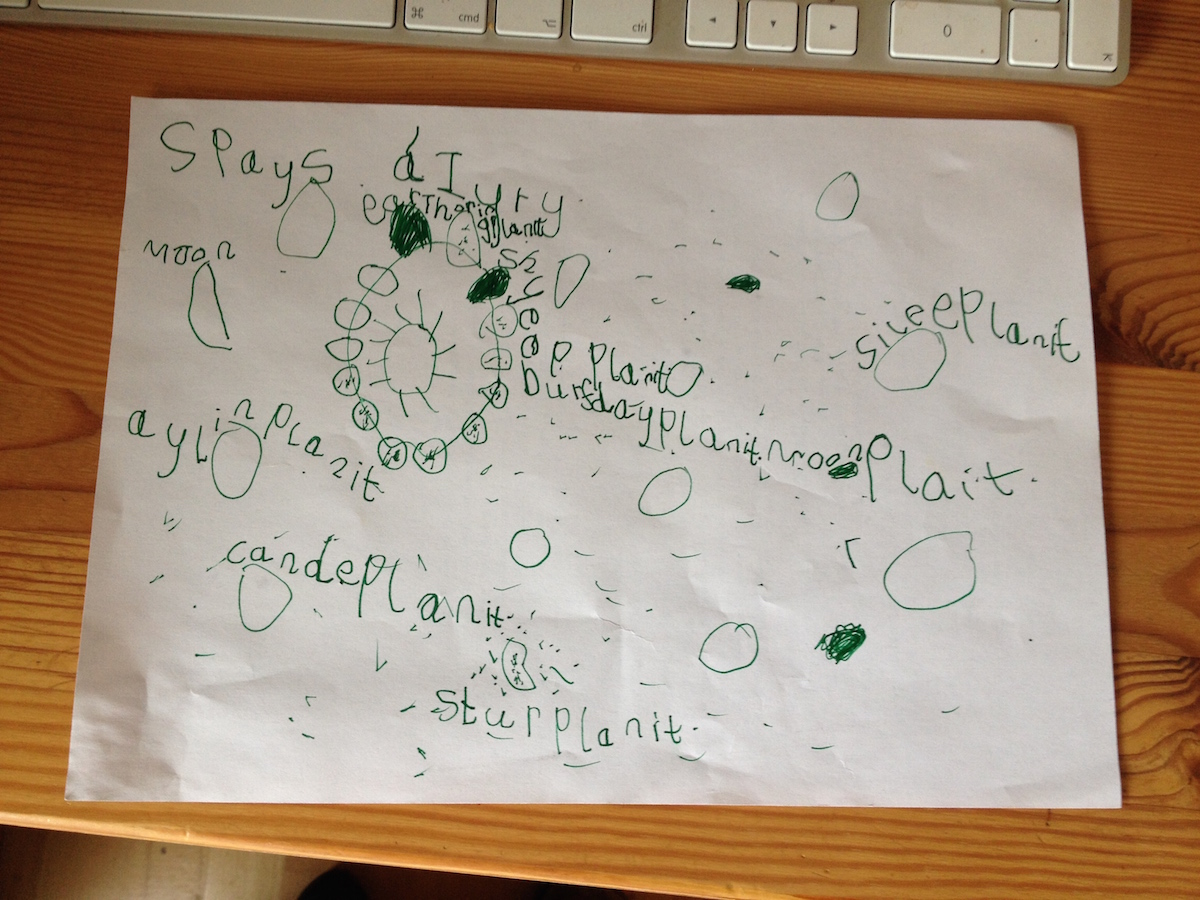 cmd
ctrl
0
Spays dIyry
earth
planit
moon
planit
bursdayplanit.
moon plait.
sileeplanit
aylin planit
candeplanit.
sturplanit.